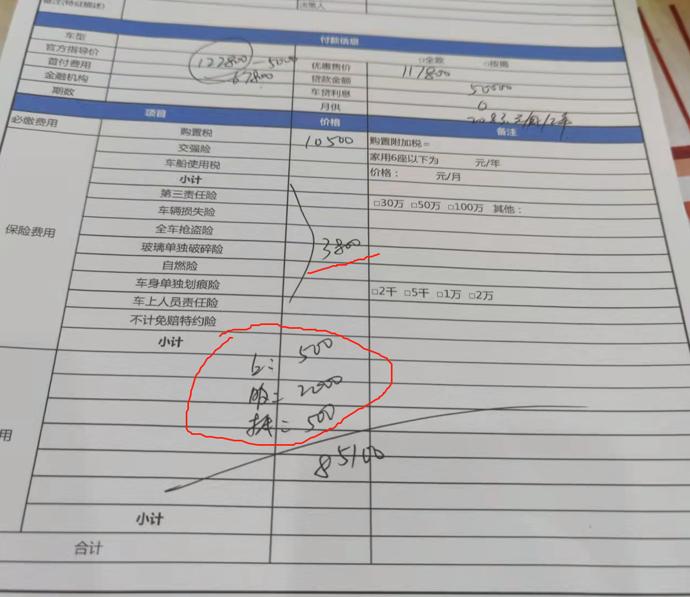 付款信息
车型 □全款 □按揭
官方指导价 122800-5000 优惠售价 117800
首付费用 67800 贷款金额 50000
金融机构 车贷利息 0
期数 月供
项目 价格 备注
必缴费用 购置税 10500 购置附加税=
交强险 家用6座以下为 元/年
车船使用税 价格: 元/月
小计
保险费用 第三责任险 □30万 □50万 □100万 其他:
车辆损失险
全车抢盗险 3800
玻璃单独破碎险
自燃险
车身单独划痕险 □2千 □5千 □1万 □2万
车上人员责任险
不计免赔特约险
小计
上: 500
服: 2000
抵: 500
用
85100
小计
合计